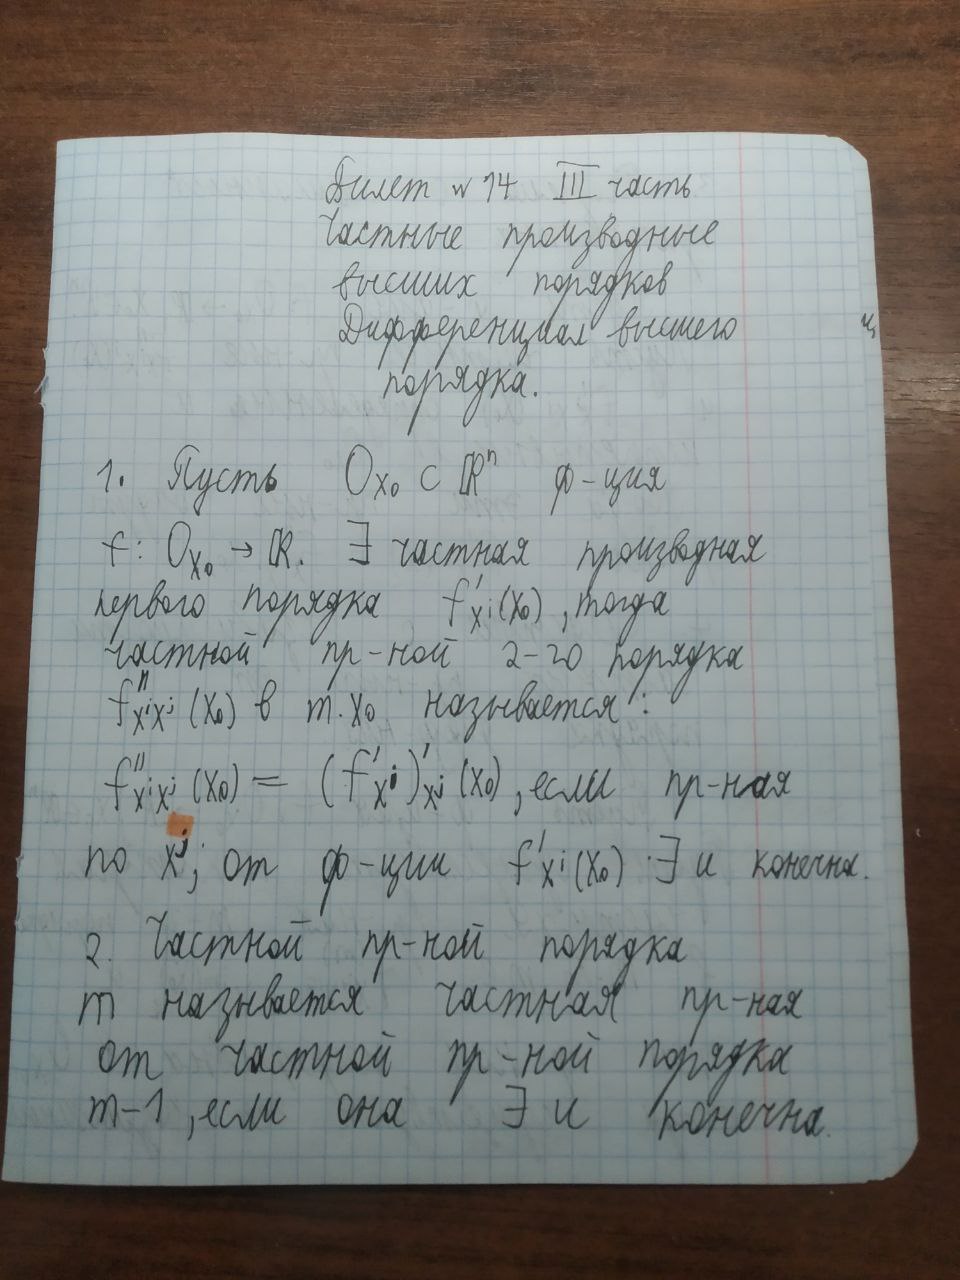 Билет № 14 III часть
Частные производные
высших порядков
Дифференциал высшего
порядка.
1. Пусть Oₓ₀ ⊂ ℝⁿ ф-ция
f: Oₓ₀ → ℝ. ∃ частная производная
первого порядка f'xⁱ(x₀), тогда
частной пр-ной 2-го порядка
f''xⁱxʲ (x₀) в т. x₀ называется:
f''xⁱxʲ (x₀) = (f'xⁱ)'xʲ (x₀), если пр-ная
по xʲ, от ф-ции f'xⁱ(x₀) ∃ и конечна.
2. Частной пр-ной порядка
m называется частная пр-ная
от частной пр-ной порядка
m-1, если она ∃ и конечна.